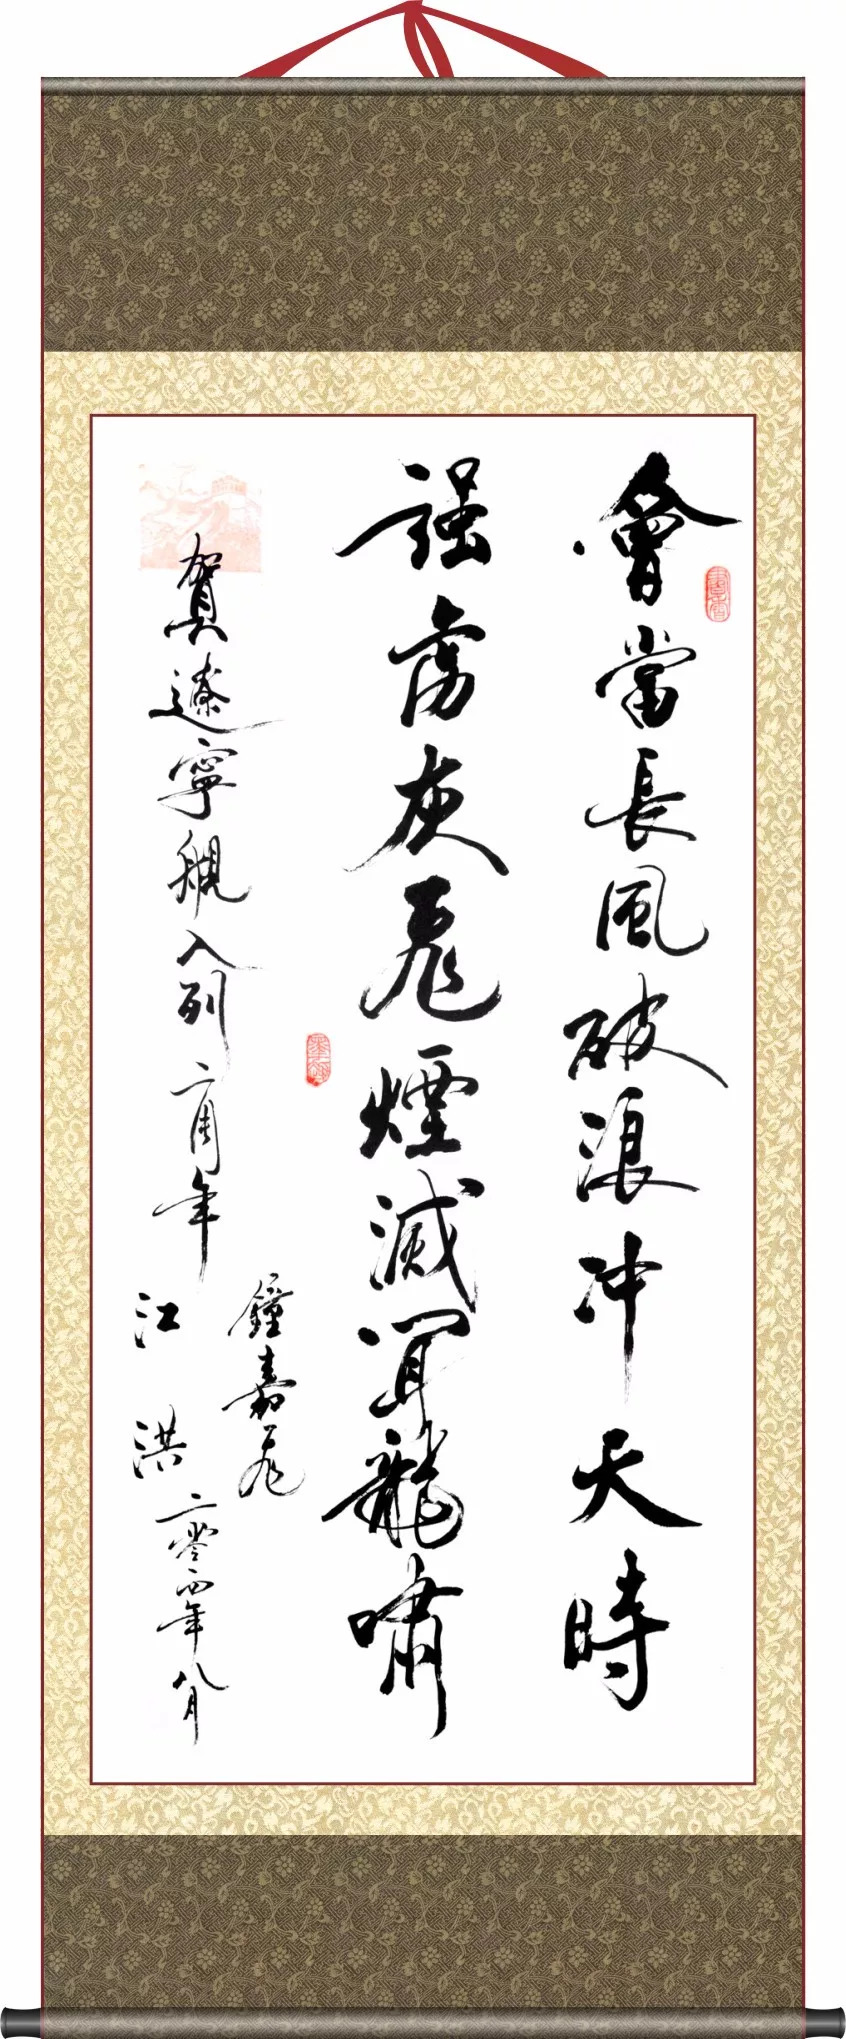 會當長風破浪沖天時
強虜灰飛煙滅聞龍嘯
賀遼寧艦入列二周年
鐘嘉飛
江洪
二零一四年八月